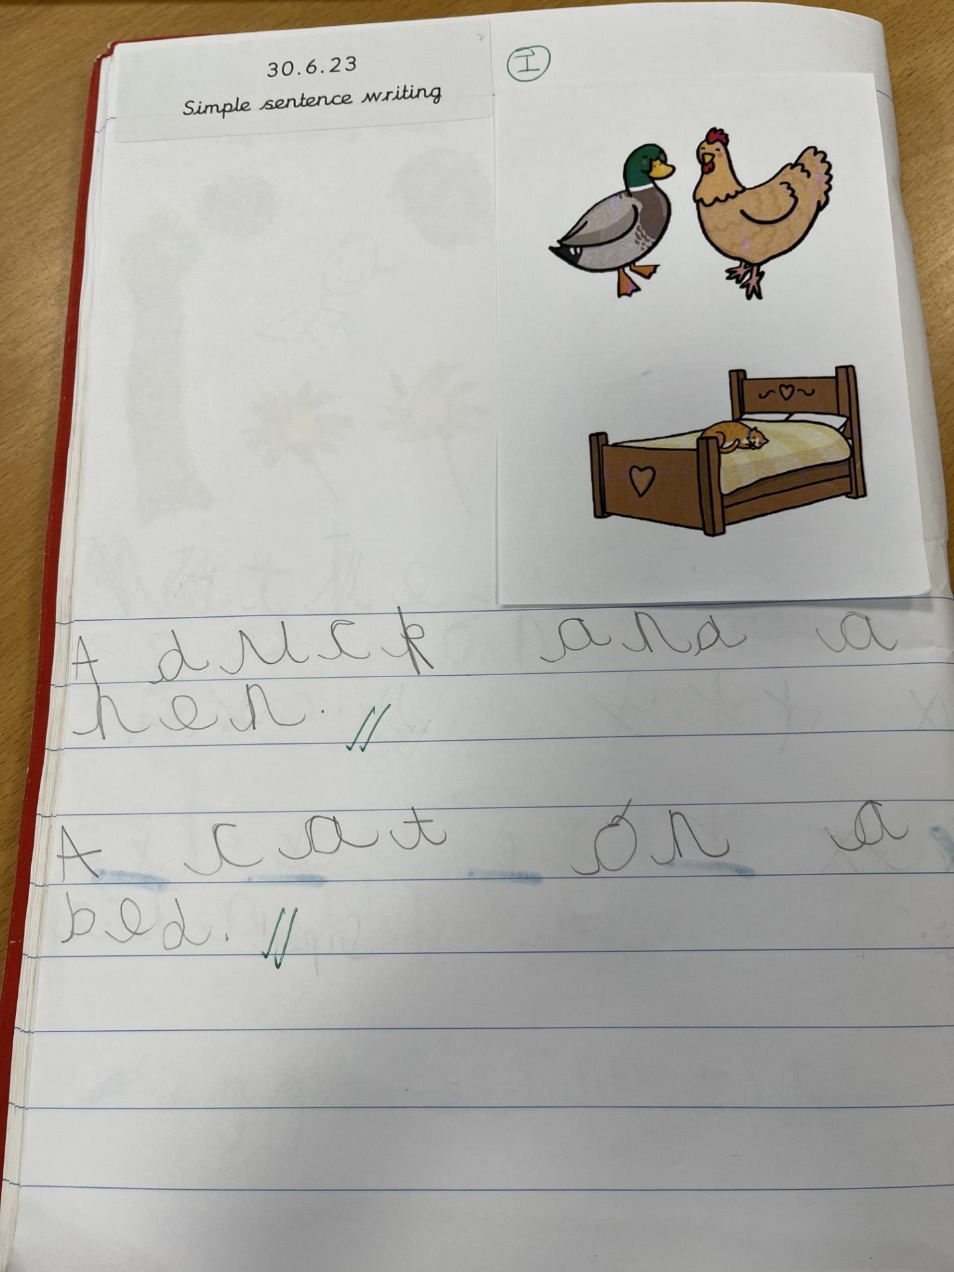 30.6.23
Simple sentence writing
I
A duck and a
hen.
A cat on a
bed.